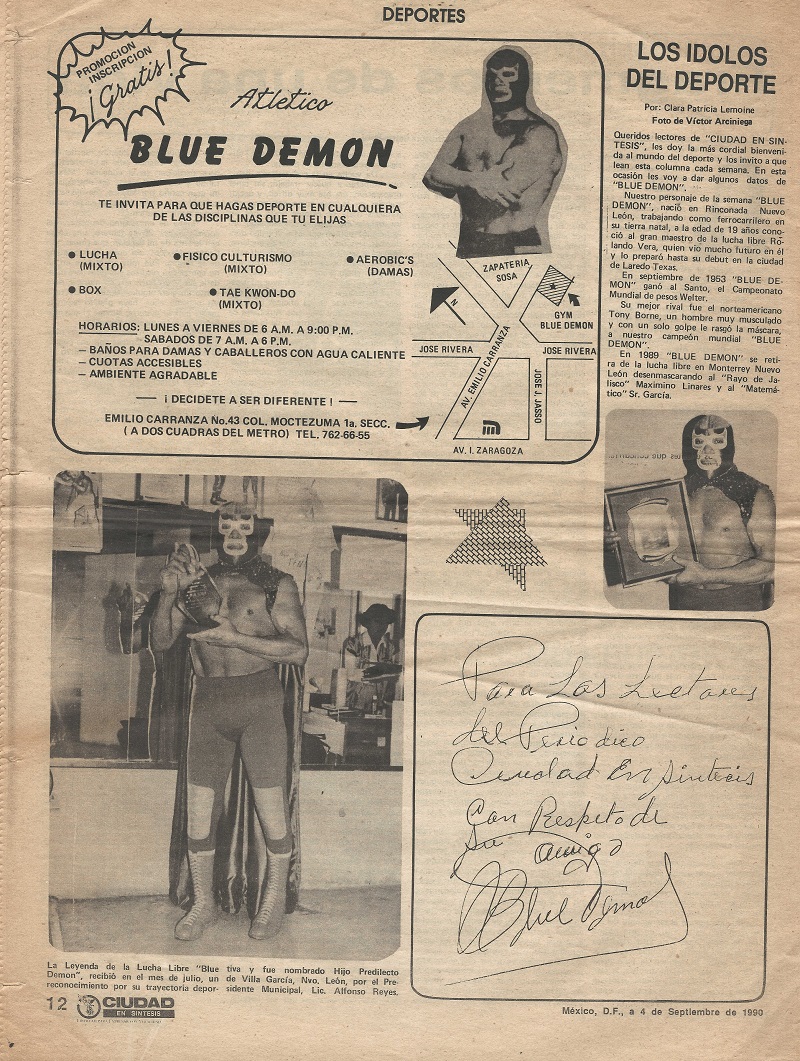 DEPORTES
PROMOCION
INSCRIPCION
¡Gratis!
Atletico
BLUE DEMON
TE INVITA PARA QUE HAGAS DEPORTE EN CUALQUIERA
DE LAS DISCIPLINAS QUE TU ELIJAS
● LUCHA
(MIXTO)
● FISICO CULTURISMO
(MIXTO)
● AEROBIC'S
(DAMAS)
● BOX
● TAE KWON-DO
(MIXTO)
HORARIOS: LUNES A VIERNES DE 6 A.M. A 9:00 P.M.
SABADOS DE 7 A.M. A 6 P.M.
— BAÑOS PARA DAMAS Y CABALLEROS CON AGUA CALIENTE
— CUOTAS ACCESIBLES
— AMBIENTE AGRADABLE
— ¡ DECIDETE A SER DIFERENTE ! —
EMILIO CARRANZA No.43 COL. MOCTEZUMA 1a. SECC.
( A DOS CUADRAS DEL METRO) TEL. 762-66-55
ZAPATERIA
SOSA
N
GYM
BLUE DEMON
JOSE RIVERA
JOSE RIVERA
AV. EMILIO CARRANZA
JOSE J. JASSO
AV. I. ZARAGOZA
LOS IDOLOS
DEL DEPORTE
Por: Clara Patricia Lemoine
Foto de Víctor Arciniega
Queridos lectores de "CIUDAD EN SIN-
TESIS", les doy la más cordial bienveni-
da al mundo del deporte y los invito a que
lean esta columna cada semana. En esta
ocasión les voy a dar algunos datos de
"BLUE DEMON".
Nuestro personaje de la semana "BLUE
DEMON", nació en Rinconada Nuevo
León, trabajando como ferrocarrilero en
su tierra natal, a la edad de 19 años cono-
ció al gran maestro de la lucha libre Ro-
lando Vera, quien vio mucho futuro en él
y lo preparó hasta su debut en la ciudad
de Laredo Texas.
En septiembre de 1953 "BLUE DE-
MON" ganó al Santo, el Campeonato
Mundial de pesos Welter.
Su mejor rival fue el norteamericano
Tony Borne, un hombre muy musculado
y con un solo golpe le rasgó la máscara,
a nuestro campeón mundial "BLUE
DEMON".
En 1989 "BLUE DEMON" se reti-
ra de la lucha libre en Monterrey Nuevo
León desenmascarando al "Rayo de Ja-
lisco" Maximino Linares y al "Matemá-
tico" Sr. García.
Para Los Lectores
del Periodico
Ciudad En Sintecis
Con Respeto de
Su amigo
Blue Demon
La Leyenda de la Lucha Libre "Blue
Demon", recibió en el mes de julio, un
reconocimiento por su trayectoria depor-
tiva y fue nombrado Hijo Predilecto
de Villa García, Nvo. León, por el Pre-
sidente Municipal, Lic. Alfonso Reyes.
12 CIUDAD
EN SINTESIS
México, D.F., a 4 de Septiembre de 1990